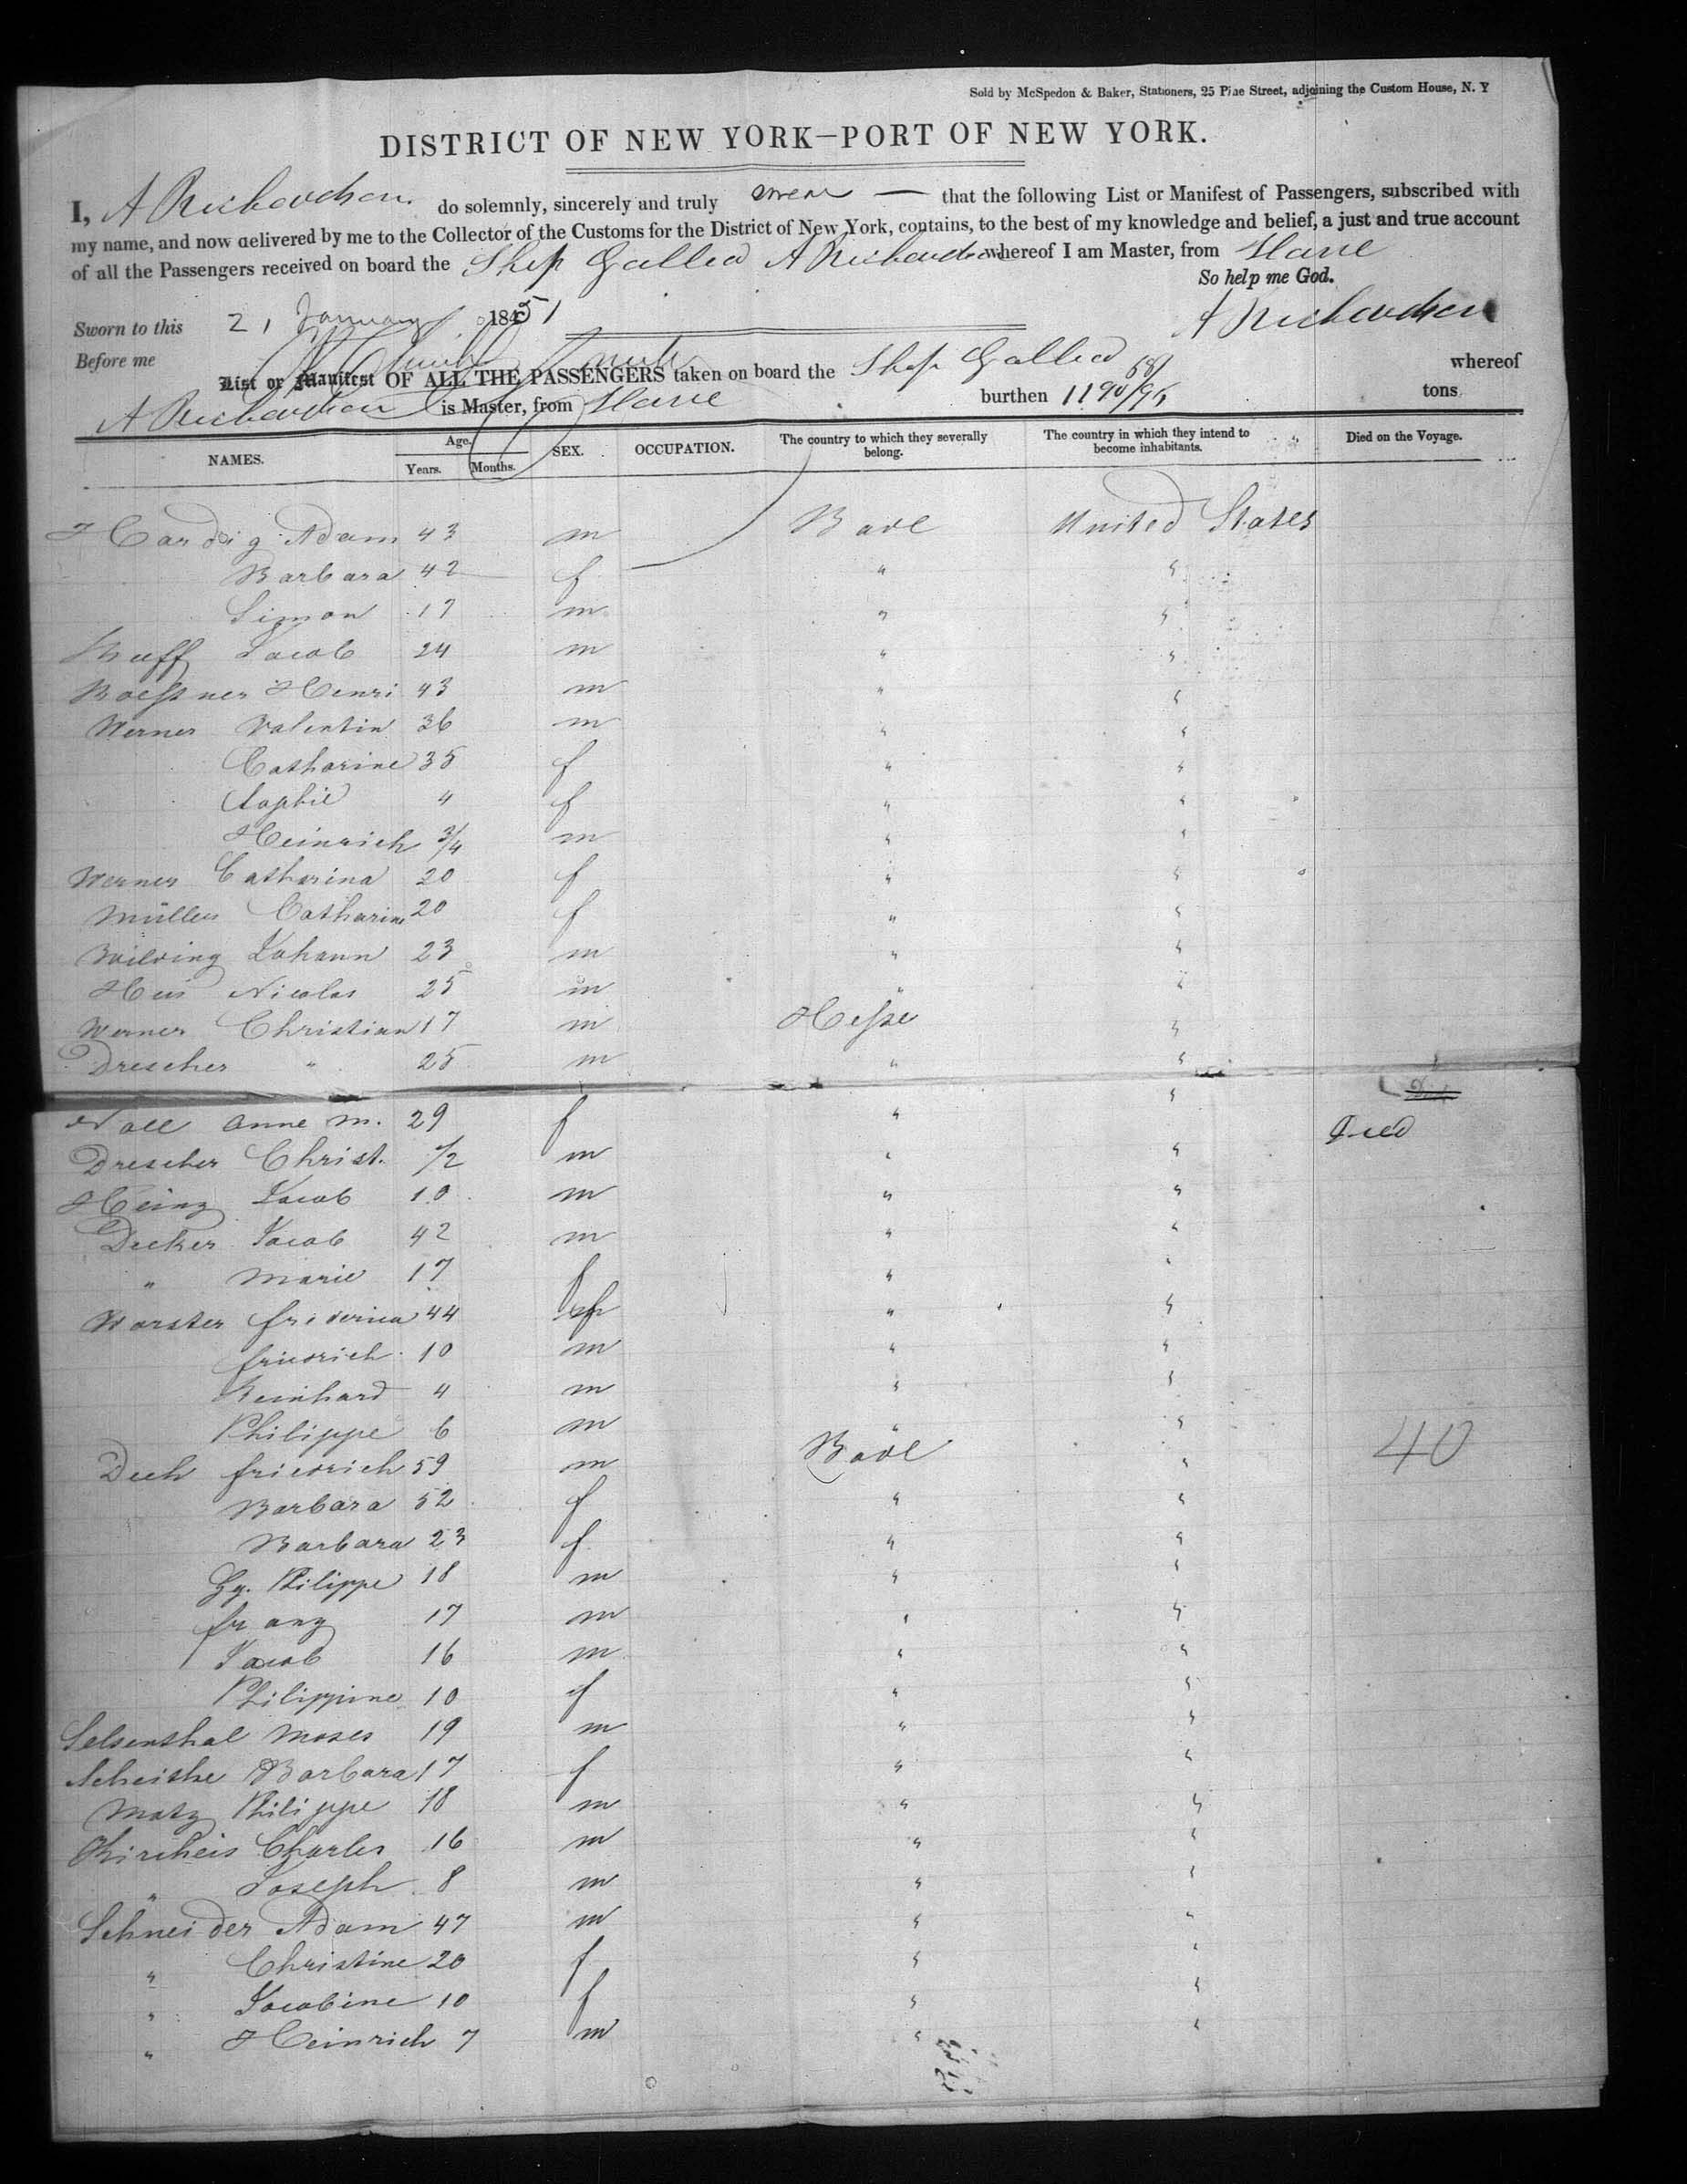 Sold by McSpedon & Baker, Stationers, 25 Pine Street, adjoining the Custom House, N. Y
DISTRICT OF NEW YORK—PORT OF NEW YORK.
I, A Richardson do solemnly, sincerely and truly swear — that the following List or Manifest of Passengers, subscribed with
my name, and now delivered by me to the Collector of the Customs for the District of New York, contains, to the best of my knowledge and belief, a just and true account
of all the Passengers received on board the Ship Gallia A Richardson whereof I am Master, from Havre
So help me God.
Sworn to this 21 January 1851
A Richardson
Before me
List or Manifest OF ALL THE PASSENGERS taken on board the Ship Gallia whereof
A Richardson is Master, from Havre burthen 1190 /95 tons
NAMES. Age. Years. Months. SEX. OCCUPATION. The country to which they severally belong. The country in which they intend to become inhabitants. Died on the Voyage.
Hardig Adam 43 m Bade United States
Barbara 42 f " "
Simon 17 m " "
Jacob 24 m " "
Henri 43 m " "
Werner Valentin 36 m " "
Catharine 35 f " "
Sophie 4 f " "
Heinrich 3/4 m " "
Werner Catharina 20 f " "
Müller Catharine 20 f " "
Johann 23 m " "
Nicolas 25 m " "
Werner Christian 17 m Hesse "
Drescher " 25 m " "
Noll Anne M. 29 f " "
Died
Drescher Christ. 1/2 m " "
Heinz Jacob 10 m " "
Decker Jacob 42 m " "
" Marie 17 f " "
Worster Friderica 44 f " "
Friedrich 10 m " "
Reinhard 4 m " "
Philippe 6 m " "
Dech Friedrich 59 m Bade " 40
Barbara 52 f " "
Barbara 23 f " "
Gg. Philippe 18 m " "
Franz 17 m " "
Jacob 16 m " "
Philippine 10 f " "
Selsenthal Moses 19 m " "
Barbara 17 f " "
Matz Philippe 18 m " "
Kircheis Charles 16 m " "
" Joseph 8 m " "
Schneider Adam 47 m " "
" Christine 20 f " "
" Jacobine 10 f " "
" Heinrich 7 m " "